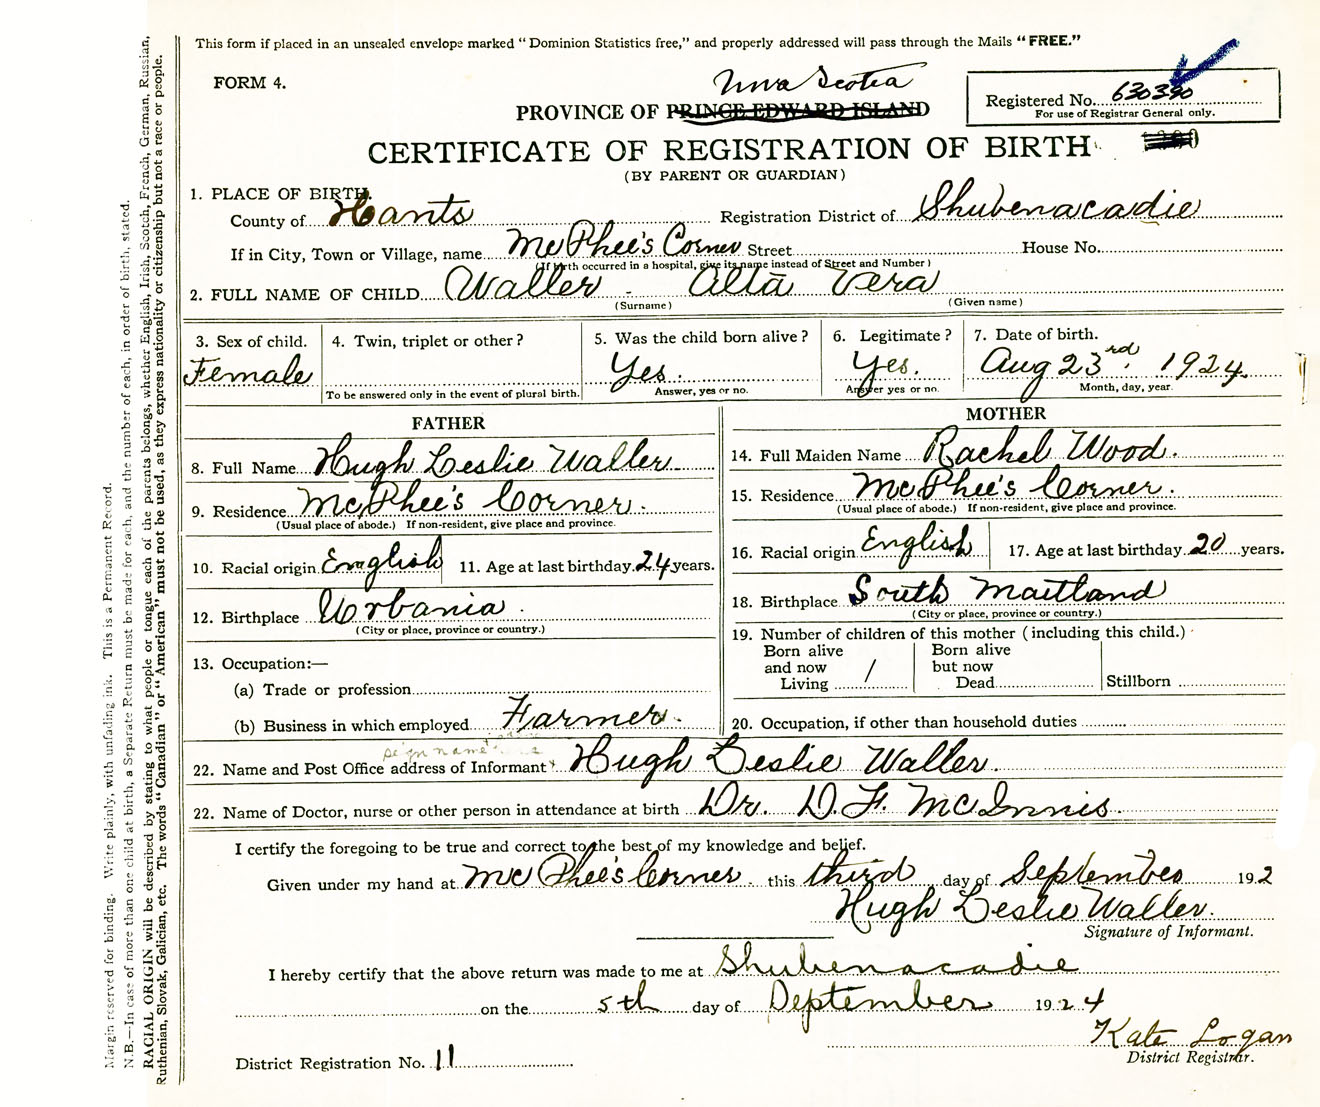 This form if placed in an unsealed envelope marked “Dominion Statistics free,” and properly addressed will pass through the Mails “FREE.”
FORM 4.
Nova Scotia
PROVINCE OF PRINCE EDWARD ISLAND
Registered No. 630390
For use of Registrar General only.
CERTIFICATE OF REGISTRATION OF BIRTH
(BY PARENT OR GUARDIAN)
1. PLACE OF BIRTH.
County of Hants Registration District of Shubenacadie
If in City, Town or Village, name McPhee's Corner Street House No.
(If birth occurred in a hospital, give its name instead of Street and Number)
2. FULL NAME OF CHILD Waller - Alta Vera
(Surname) (Given name)
3. Sex of child. 4. Twin, triplet or other? 5. Was the child born alive? 6. Legitimate? 7. Date of birth.
Female Yes. Yes. Aug 23rd. 1924.
To be answered only in the event of plural birth. Answer, yes or no. Answer yes or no. Month, day, year.
FATHER
8. Full Name Hugh Leslie Waller
9. Residence McPhee's Corner.
(Usual place of abode.) If non-resident, give place and province.
10. Racial origin English 11. Age at last birthday 24 years.
12. Birthplace Urbania.
(City or place, province or country.)
13. Occupation:—
(a) Trade or profession
(b) Business in which employed Farmer.
MOTHER
14. Full Maiden Name Rachel Wood.
15. Residence McPhee's Corner.
(Usual place of abode.) If non-resident, give place and province.
16. Racial origin English 17. Age at last birthday 20 years.
18. Birthplace South Maitland
(City or place, province or country.)
19. Number of children of this mother (including this child.)
Born alive and now Living 1 Born alive but now Dead Stillborn
20. Occupation, if other than household duties
sign name
22. Name and Post Office address of Informant Hugh Leslie Waller.
22. Name of Doctor, nurse or other person in attendance at birth Dr. D. F. McInnis
I certify the foregoing to be true and correct to the best of my knowledge and belief.
Given under my hand at McPhee's Corner. this third day of September 192
Hugh Leslie Waller.
Signature of Informant.
I hereby certify that the above return was made to me at Shubenacadie
on the 5th day of September 1924
Kate Logan
District Registrar.
District Registration No. 11
Margin reserved for binding. Write plainly, with unfading ink. This is a Permanent Record.
N.B.—In case of more than one child at birth, a Separate Return must be made for each, and the number of each, in order of birth, stated.
RACIAL ORIGIN will be described by stating to what people or tongue each of the parents belongs, whether English, Irish, Scotch, French, German, Russian,
Ruthenian, Slovak, Galician, etc. The words “Canadian” or “American” must not be used, as they express nationality or citizenship but not a race or people.